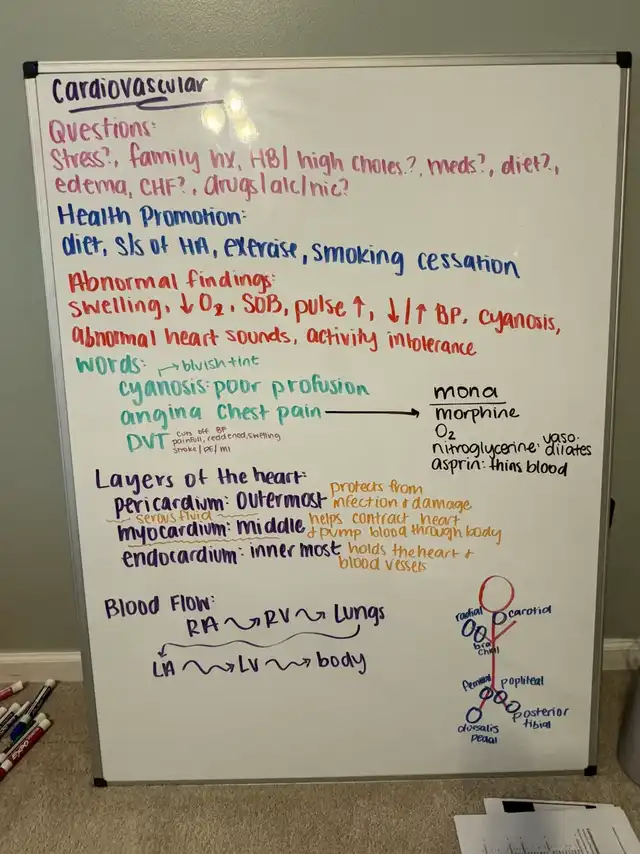 Cardiovascular
Questions:
Stress?, family hx, HB/ high choles.?, meds?, diet?,
edema, CHF?, drugs/alc/nic?
Health Promotion:
diet, s/s of HA, exercise, smoking cessation
Abnormal findings:
swelling, ↓ O2, SOB, pulse ↑, ↓/↑ BP, cyanosis,
abnormal heart sounds, activity intolerance
words: → bluish tint
cyanosis: poor profusion
angina chest pain →
DVT cuts off BF
painfull, reddened, swelling
stroke/PE/MI
mona
morphine
O2
nitroglycerine: vaso.
dilates
asprin: thins blood
Layers of the heart:
pericardium: outermost protects from
infection & damage
serous fluid
myocardium: middle helps contract heart
& pump blood through body
endocardium: inner most holds the heart &
blood vessels
Blood Flow:
RA → RV → Lungs
LA → LV → body
radial
carotid
bra
chial
femoral
popliteal
posterior
tibial
dorsalis
pedal
EXPO